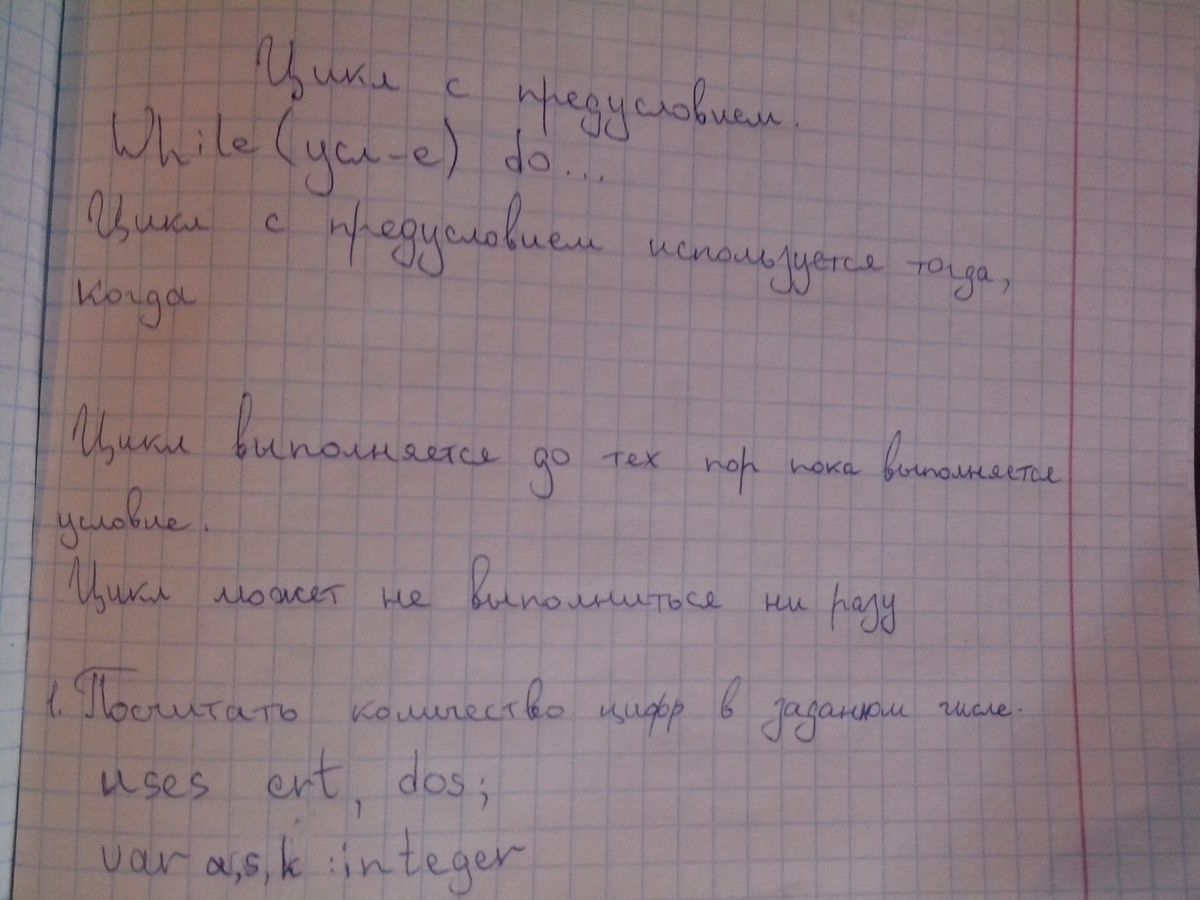 Цикл с предусловием.
While (усл-е) do...
Цикл с предусловием используется тогда,
когда
Цикл выполняется до тех пор пока выполняется
условие.
Цикл может не выполниться ни разу
1. Посчитать количество цифр в заданном числе.
uses crt, dos;
var a,s,k :integer